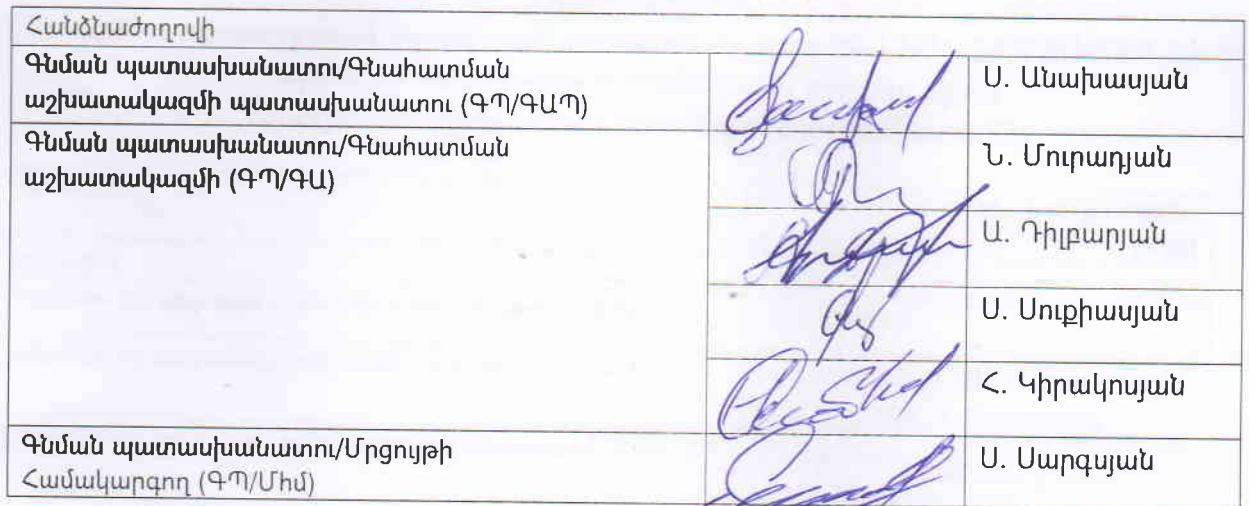 Հանձնաժողովի
Գնման պատասխանատու/Գնահատման
աշխատակազմի պատասխանատու (ԳՊ/ԳԱՊ)
Ս. Անախասյան
Գնման պատասխանատու/Գնահատման
աշխատակազմի (ԳՊ/ԳԱ)
Ն. Մուրադյան
Ա. Դիլբարյան
Ս. Սուքիասյան
Հ. Կիրակոսյան
Գնման պատասխանատու/Մրցույթի
Համակարգող (ԳՊ/Միմ)
Ս. Սարգսյան